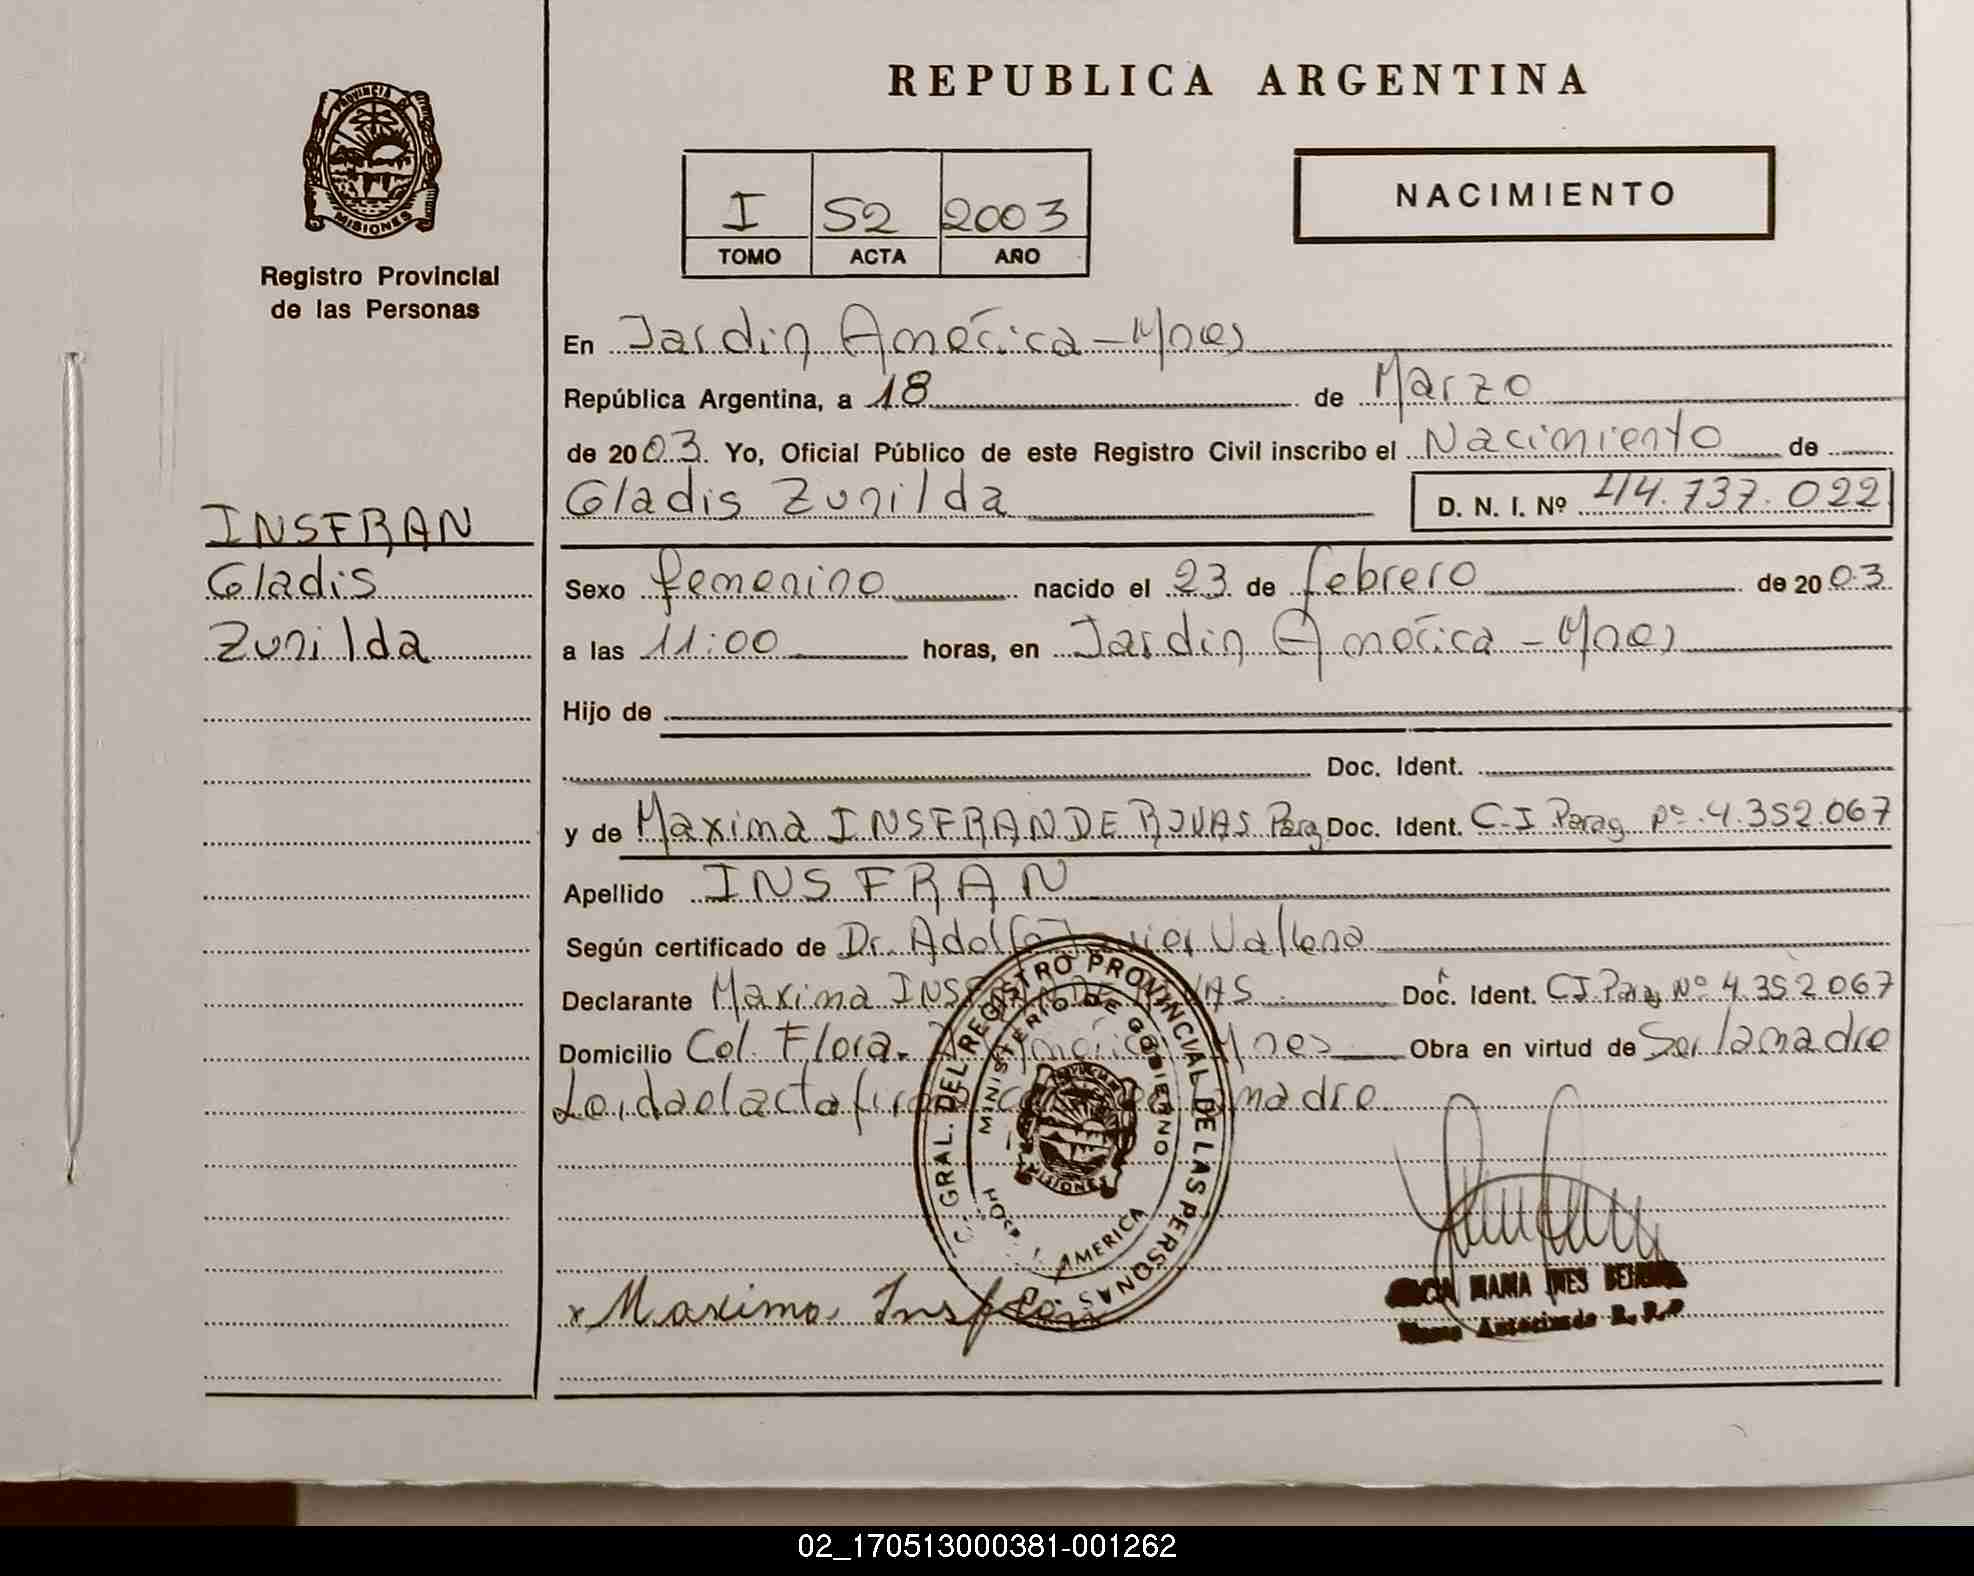 REPUBLICA ARGENTINA
PROVINCIA DE MISIONES
Registro Provincial
de las Personas
I 52 2003
TOMO ACTA AÑO
NACIMIENTO
En Jardin América - Mnes
República Argentina, a 18 de Marzo
de 2003. Yo, Oficial Público de este Registro Civil inscribo el Nacimiento de
Gladis Zunilda D. N. I. Nº 44.737.022
INSFRAN
Gladis
Zunilda
Sexo femenino nacido el 23 de febrero de 2003
a las 11:00 horas, en Jardin América - Mnes
Hijo de
Doc. Ident.
y de Maxima INSFRAN DE ROJAS Parag Doc. Ident. C.I Parag nº 4.352.067
Apellido INSFRAN
Según certificado de Dr. Adolfo Javier
Declarante Maxima INSFRAN DE ROJAS Doc. Ident. CI Parag Nº 4.352.067
Domicilio Col. Flora. América Mnes Obra en virtud de Ser la madre
Leida el acta firma madre
GRAL. DEL REGISTRO PROVINCIAL DE LAS PERSONAS
MINISTERIO DE GOBIERNO
MISIONES
AMERICA
x Maxima Insfran
MARIA INES
Autorizada R. P. P
02_170513000381-001262